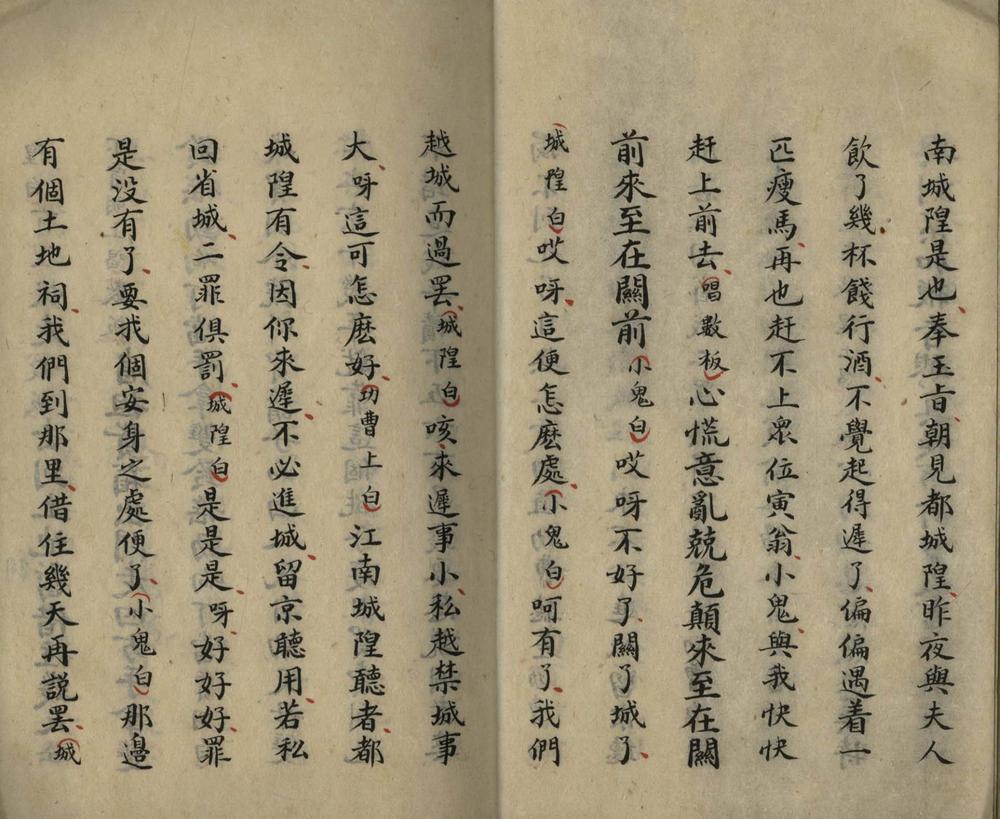 南城隍是也奉玉旨朝見都城隍昨夜與夫人
飲了幾杯餞行酒不覺起得遲了偏偏遇着一
匹瘦馬再也赶不上衆位寅翁小鬼與我快快
赶上前去(唱數板)心慌意亂兢危顛來至在關
前來至在關前(小鬼白)哎呀不好了關了城了
(城隍白)哎呀這便怎庅處(小鬼白)呵有了我們
越城而過罢(城隍白)咳來遲事小私越禁城事
大呀這可怎庅好(功曹上白)江南城隍聽者都
城隍有令因你來遲不必進城留京聽用若私
回省城二罪俱罰(城隍白)是是是呀好好好罪
是没有了要我個安身之處便了(小鬼白)那邉
有個土地祠我們到那里借住幾天再説罢(城